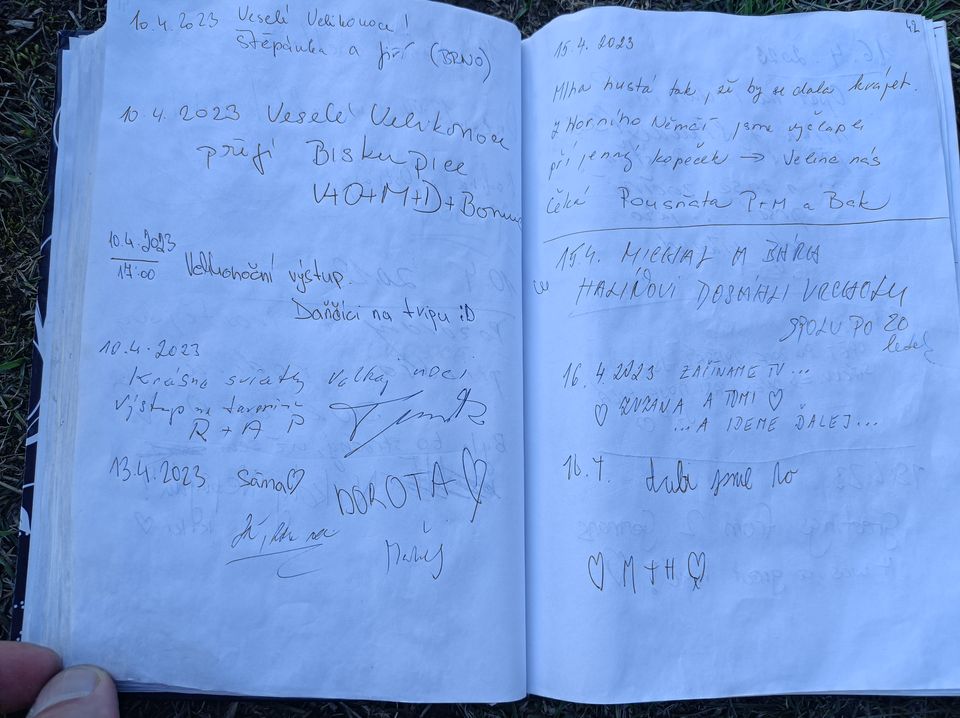 10.4.2023 Veselé Velikonoce!
Štěpánka a Jiří (BRNO)
10.4.2023 Veselé Velikonoce
přejí Biskupice
V+O+M+D+
10.4.2023
17:00 Velikonoční výstup.
Daňďíci na tripu :D
10.4.2023
Krásna sviatky Velkej noci
Výstup na
R + A P
13.4.2023 Sáma♡ DOROTA♡
Matúš
42
15.4.2023
Mlha hustá tak, že by se dala krájet.
Z Horního Němčí jsme vyšlapli
příjemný kopeček → Velina nás
čeká Pousňata P+M a Bak
15.4. MICHAL A BÁRA
HALÍŘOVI DOSÁHLI VRCHOLU
SPOLU PO 20
letech
16.4.2023 ZAČÍNAME TU...
♡ ZUZANA A TOMI ♡
...A IDEME ĎALEJ...
16.4. dali jsme to
♡ M + H ♡